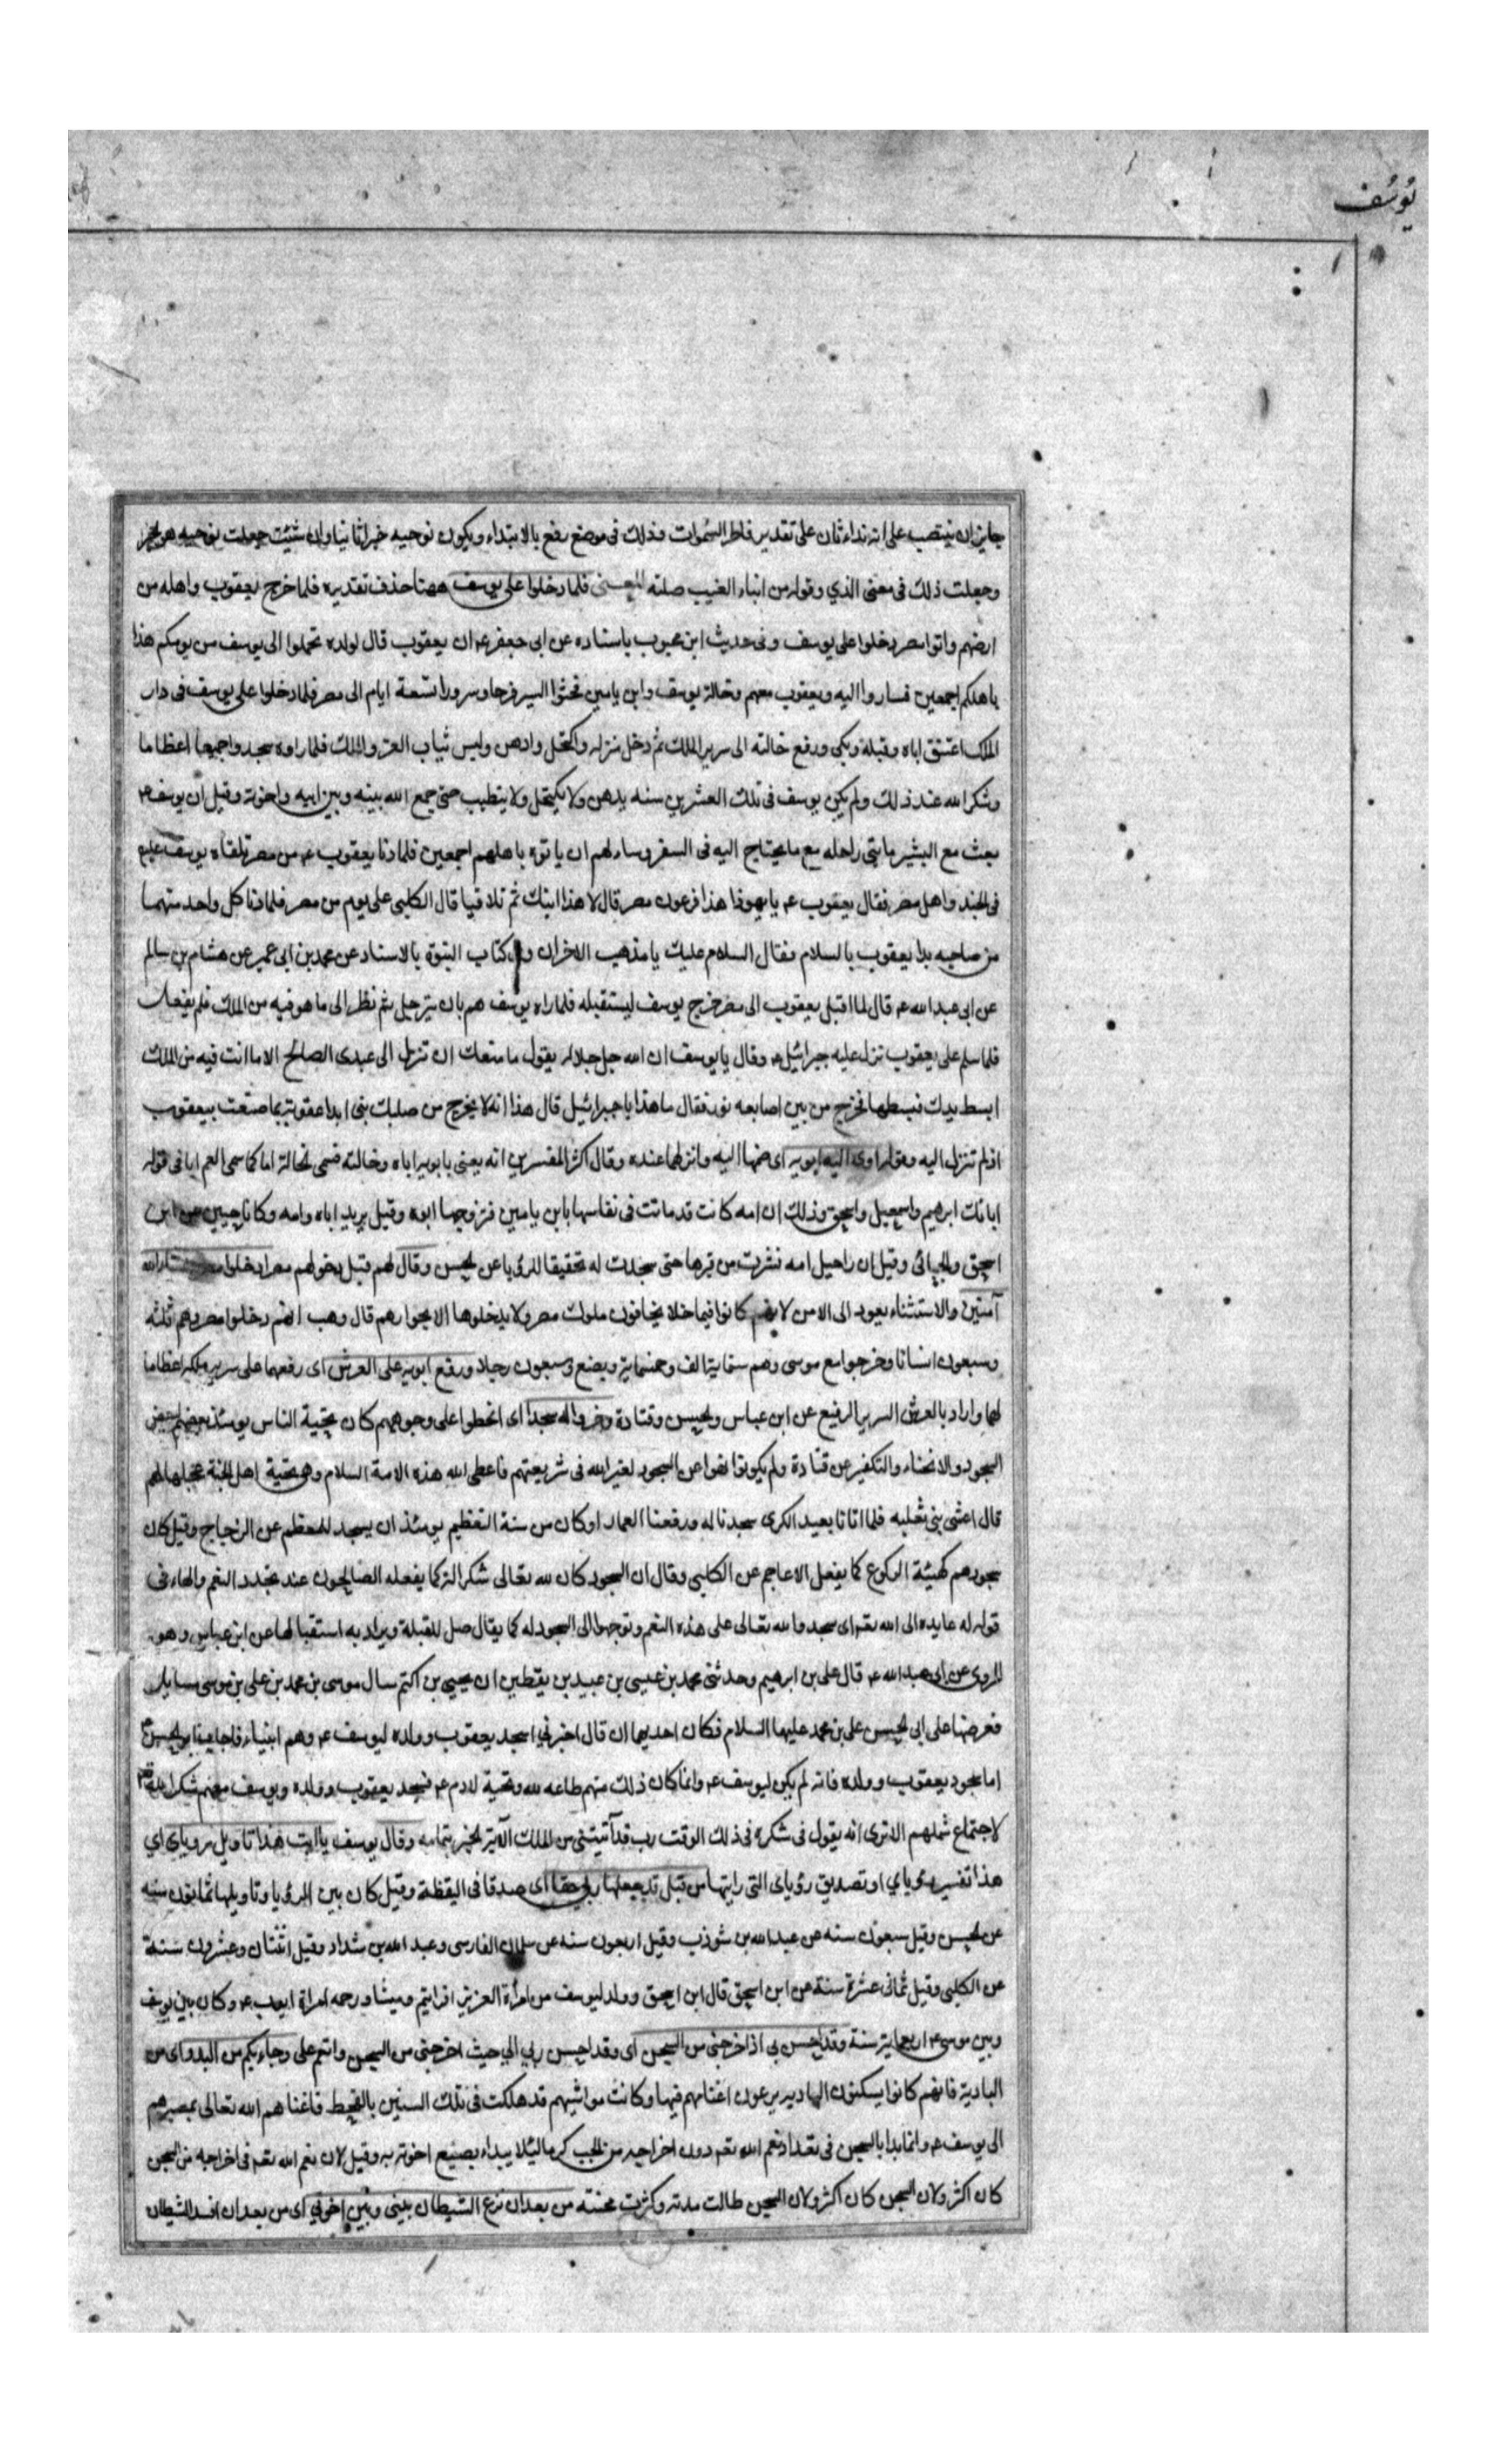 يوسف
جايز ان ينتصب على انه نداء ثان على تقدير فاطر السموات وذلك فى موضع رفع بالابتداء ويكون نوحيه خبرا ثانيا وان شئت جعلت نوحيه هو الخبر
وجعلت ذلك فى معنى الذي وقوله من انباء الغيب صلته المعنى فلما دخلوا على يوسف ههنا حذف تقديره فلما خرج يعقوب واهله من
ارضهم واتوا مصر دخلوا على يوسف وفى حديث ابن محبوب باسناده عن ابى جعفر ع ان يعقوب قال لولده تحملوا الى يوسف من يومكم هذا
باهلكم اجمعين فساروا اليه ويعقوب معهم وخالة يوسف وابن يامين فحثوا السير فرحا وسرورا تسعة ايام الى مصر فلما دخلوا على يوسف فى دار
الملك اعتنق اباه وقبله وبكى ورفع خالته الى سرير الملك ثم دخل منزله واكتحل وادهن ولبس ثياب العز والملك فلما راوه سجدوا جميعا اعظاما
وشكرا لله عند ذلك ولم يكن يوسف فى تلك العشرين سنه يدهن ولا يكتحل ولا يتطيب حتى جمع الله بينه وبين ابيه واخوته وقيل ان يوسف ع
بعث مع البشير مايتى راحله مع ما يحتاج اليه فى السفر وسالهم ان ياتوه باهلهم اجمعين فلما دنا يعقوب ع من مصر تلقاه يوسف
فى الجند واهل مصر فقال يعقوب ع يا يهوذا هذا فرعون مصر قال لا هذا ابنك ثم تلاقيا قال الكلبى على يوم من مصر فلما دنا كل واحد منهما
من صاحبه بدا يعقوب بالسلام فقال السلام عليك يا مذهب الاحزان وفى كتاب النبوة بالاسناد عن محمد بن ابى عمير عن هشام بن سالم
عن ابى عبد الله ع قال لما اقبل يعقوب الى مصر خرج يوسف ليستقبله فلما راه يوسف هم بان يترجل ثم نظر الى ما هو فيه من الملك فلم يفعل
فلما سلم على يعقوب نزل عليه جبرائيل ع وقال يا يوسف ان الله جل جلاله يقول ما منعك ان تنزل الى عبدى الصالح الا ما انت فيه من الملك
ابسط يدك فبسطها فخرج من بين اصابعه نور فقال ما هذا يا جبرائيل قال هذا انه لا يخرج من صلبك نبى ابدا عقوبة بما صنعت بيعقوب
اذ لم تنزل اليه وقوله اوى اليه ابويه اى ضمهما اليه وانزلهما عنده وقال اكثر المفسرين انه يعنى بابويه اباه وخالته فسمى الخالة اما كما سمى العم ابا فى قوله
ابائك ابرهيم واسمعيل واسحق وذلك ان امه كانت قد ماتت فى نفاسها بابن يامين فتزوجها ابوه وقيل يريد اباه وامه وكانا حيين عن ابن
اسحق والجبائى وقيل ان راحيل امه نشرت من قبرها حتى سجدت له تحقيقا للرؤيا عن الحسن وقال لهم قبل دخولهم مصر ادخلوا مصر ان شاء الله
آمنين والاستثناء يعود الى الامن لانهم كانوا فيما خلا يخافون ملوك مصر ولا يدخلوها الا بجوارهم قال وهب انهم دخلوا مصر وهم ثلثه
وسبعون انسانا وخرجوا مع موسى وهم ستماية الف وخمسماية وبضع وسبعون رجلا ورفع ابويه على العرش اى رفعهما على سرير ملكه اعظاما
لهما واراد بالعرش السرير الرفيع عن ابن عباس والحسن وقتادة وخروا له سجدا اى انحطوا على وجوههم كان تحية الناس يومئذ بعضهم لبعض
السجود والانحناء والتكفير عن قتادة ولم يكونوا نهوا عن السجود لغير الله فى شريعتهم فاعطى الله هذه الامة السلام وهى تحية اهل الجنة عجلها لهم
قال اعشى بنى ثعلبه فلما اتانا بعيد الكرى سجدنا له ورفعنا العمارا وكان من سنة التعظيم يومئذ ان يسجد للمعظم عن الزجاج وقيل كان
سجودهم كهيئة الركوع كما يفعل الاعاجم عن الكلبى وقال ان السجود كان لله تعالى شكرا له كما يفعله الصالحون عند تجدد النعم والهاء فى
قوله له عايده الى الله تعالى اى سجدوا لله تعالى على هذه النعم وتوجهوا الى السجود له كما يقال صل للقبلة ويراد به استقبالها عن ابن عباس وهو
المروى عن ابى عبد الله ع قال على بن ابرهيم وحدثنى محمد بن عيسى بن عبيد بن يقطين ان يحيى بن اكثم سال موسى بن محمد بن على بن موسى مسايل
فعرضها على ابى الحسن على بن محمد عليهما السلام فكان احديها ان قال اخبرني اسجد يعقوب وولده ليوسف ع وهم انبياء فاجاب ابو الحسن ع
اما سجود يعقوب وولده فانه لم يكن ليوسف ع وانما كان ذلك منهم طاعه لله وتحية لادم ع فسجد يعقوب وولده ويوسف معهم شكرا لله
لاجتماع شملهم الا ترى انه يقول فى شكره فى ذلك الوقت رب قد آتيتنى من الملك الآية الخبر بتمامه وقال يوسف يا ابت هذا تاويل روياي اي
هذا تفسير رؤياي او تصديق رؤياى التى رايتها من قبل قد جعلها ربى حقا اى صدقا فى اليقظة وقيل كان بين الرؤيا وتاويلها ثمانون سنه
عن الحسن وقيل سبعون سنه عن عبد الله بن شوذب وقيل اربعون سنه عن سلمان الفارسى وعبد الله بن شداد وقيل اثنتان وعشرون سنة
عن الكلبى وقيل ثمانى عشرة سنة عن ابن اسحق قال ابن اسحق وولد ليوسف من امرأة العزيز افرايم وميشا ورحمه امراة ايوب ع وكان بين يوسف
وبين موسى ع اربعماية سنة وقد احسن بى اذ اخرجنى من السجن اى وقد احسن ربي الي حيث اخرجنى من السجن وانعم على وجاء بكم من البدو اى من
البادية فانهم كانوا يسكنون الباديه يرعون اغنامهم فيها وكانت مواشيهم قد هلكت فى تلك السنين بالقحط فاغناهم الله تعالى بمصيرهم
الى يوسف ع وانما بدا بالسجن فى تعداد نعم الله تعالى دون اخراجه من الجب كرما لئلا يبداء بصنيع اخوته به وقيل لان نعم الله تعالى فى اخراجه من السجن
كان اكثر ولان السجن كان اكثر ولان السجن طالت مدته وكثرت محنته من بعد ان نزغ الشيطان بينى وبين اخوتي اى من بعد ان افسد الشيطان